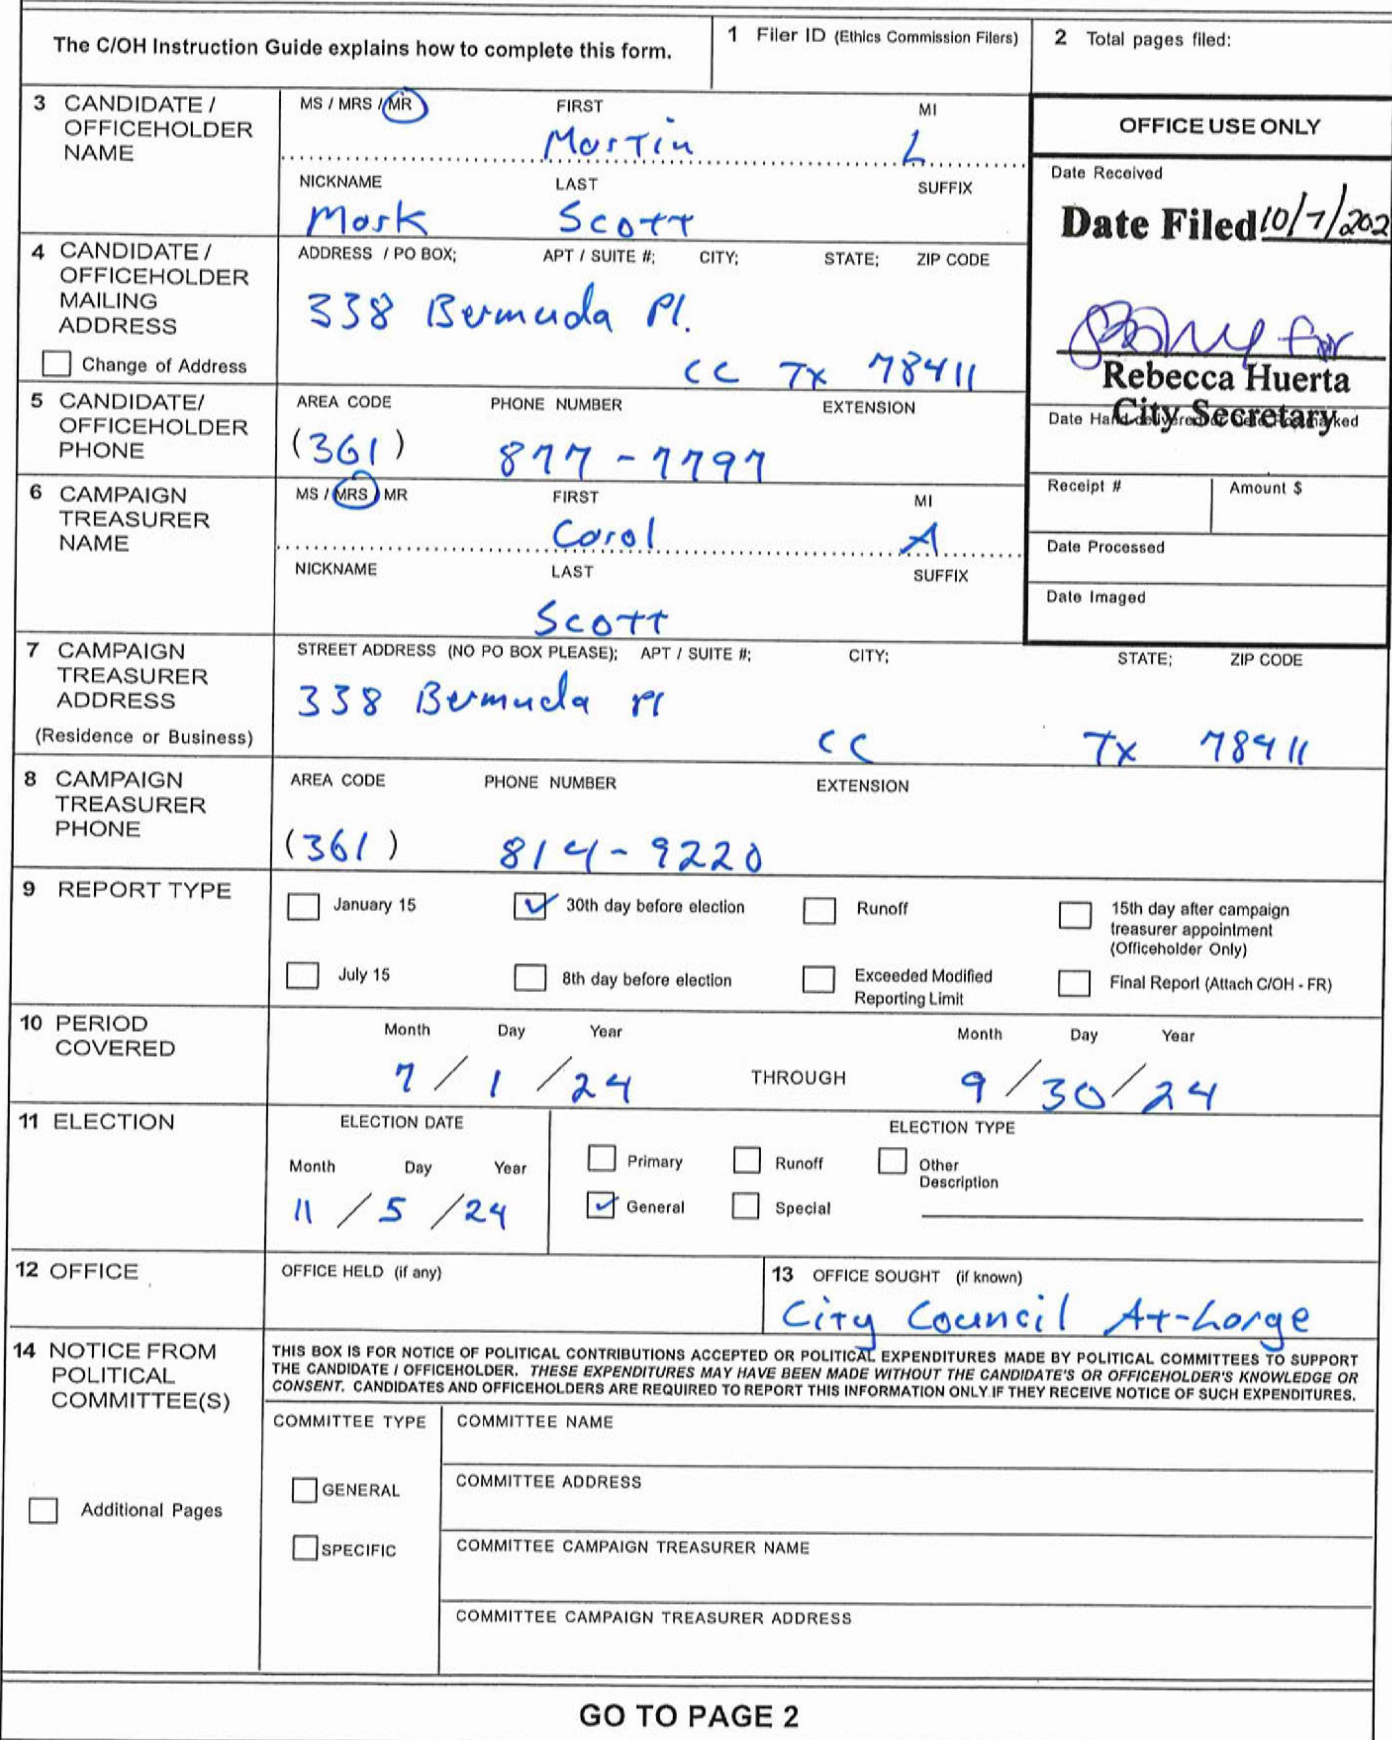 The C/OH Instruction Guide explains how to complete this form.
1 Filer ID (Ethics Commission Filers)
2 Total pages filed:
3 CANDIDATE / OFFICEHOLDER NAME
MS / MRS / MR FIRST MI
Martin L
NICKNAME LAST SUFFIX
Mark Scott
OFFICE USE ONLY
Date Received
Date Filed 10/7/202
4 CANDIDATE / OFFICEHOLDER MAILING ADDRESS
Change of Address
ADDRESS / PO BOX; APT / SUITE #; CITY; STATE; ZIP CODE
338 Bermuda Pl.
CC TX 78411
for
Rebecca Huerta
City Secretary
Date Hand-delivered or Date Postmarked
5 CANDIDATE/ OFFICEHOLDER PHONE
AREA CODE PHONE NUMBER EXTENSION
(361) 877-7797
Receipt # Amount $
Date Processed
Date Imaged
6 CAMPAIGN TREASURER NAME
MS / MRS / MR FIRST MI
Carol A
NICKNAME LAST SUFFIX
Scott
7 CAMPAIGN TREASURER ADDRESS
(Residence or Business)
STREET ADDRESS (NO PO BOX PLEASE); APT / SUITE #; CITY; STATE; ZIP CODE
338 Bermuda Pl
CC TX 78411
8 CAMPAIGN TREASURER PHONE
AREA CODE PHONE NUMBER EXTENSION
(361) 814-9220
9 REPORT TYPE
January 15
30th day before election
Runoff
15th day after campaign treasurer appointment (Officeholder Only)
July 15
8th day before election
Exceeded Modified Reporting Limit
Final Report (Attach C/OH - FR)
10 PERIOD COVERED
Month Day Year
7 / 1 / 24
THROUGH
Month Day Year
9 / 30 / 24
11 ELECTION
ELECTION DATE
Month Day Year
11 / 5 / 24
ELECTION TYPE
Primary Runoff Other Description
General Special
12 OFFICE
OFFICE HELD (if any)
13 OFFICE SOUGHT (if known)
City Council At-Large
14 NOTICE FROM POLITICAL COMMITTEE(S)
Additional Pages
THIS BOX IS FOR NOTICE OF POLITICAL CONTRIBUTIONS ACCEPTED OR POLITICAL EXPENDITURES MADE BY POLITICAL COMMITTEES TO SUPPORT
THE CANDIDATE / OFFICEHOLDER. THESE EXPENDITURES MAY HAVE BEEN MADE WITHOUT THE CANDIDATE'S OR OFFICEHOLDER'S KNOWLEDGE OR
CONSENT. CANDIDATES AND OFFICEHOLDERS ARE REQUIRED TO REPORT THIS INFORMATION ONLY IF THEY RECEIVE NOTICE OF SUCH EXPENDITURES.
COMMITTEE TYPE
GENERAL
SPECIFIC
COMMITTEE NAME
COMMITTEE ADDRESS
COMMITTEE CAMPAIGN TREASURER NAME
COMMITTEE CAMPAIGN TREASURER ADDRESS
GO TO PAGE 2